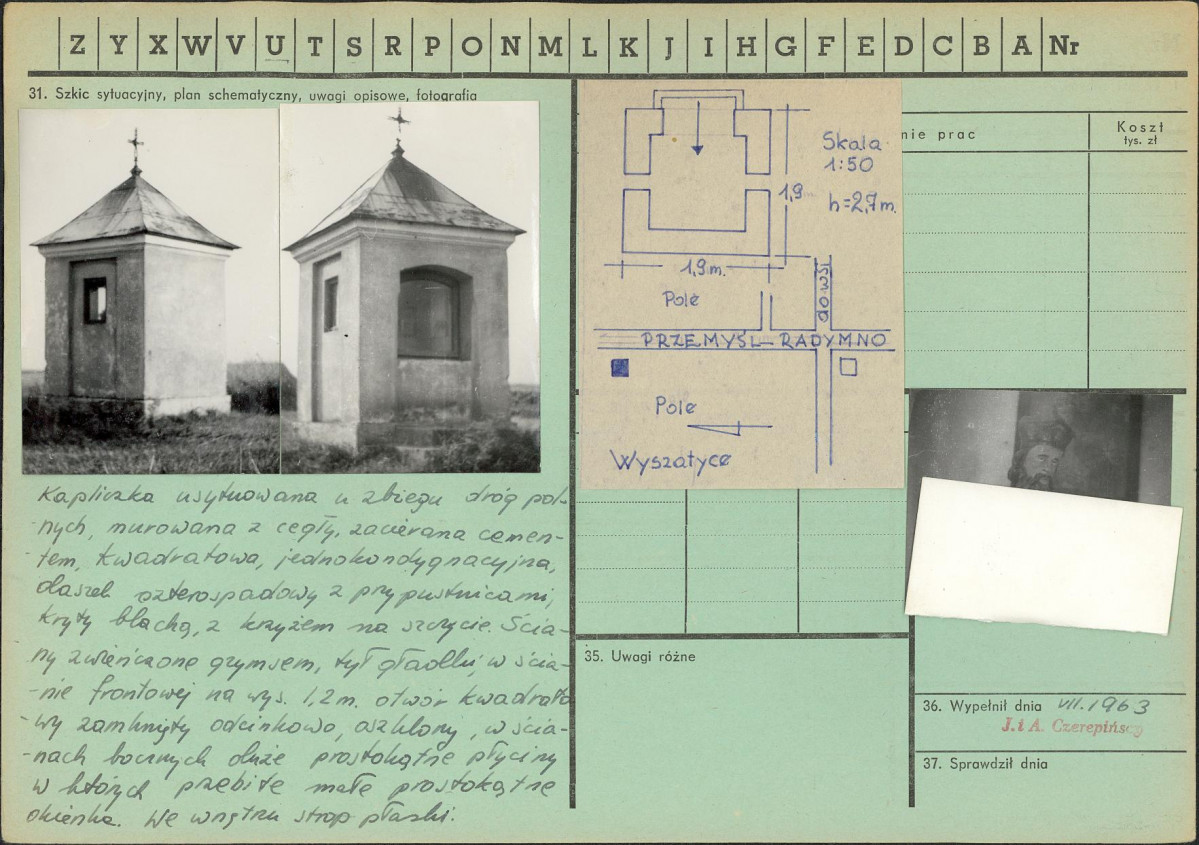 Z Y X W V U T S R P O N M L K J I H G F E D C B A Nr
31. Szkic sytuacyjny, plan schematyczny, uwagi opisowe, fotografia
Kapliczka usytuowana u zbiegu dróg pol-
-nych, murowana z cegły, zacierana cemen-
-tem, kwadratowa, jednokondygnacyjna,
daszek czterospadowy z przypustnicami,
kryty blachą, z krzyżem na szczycie. Ścia-
-ny zwieńczone gzymsem, tył gładki, w ścia-
-nie frontowej na wys. 1,2 m. otwór kwadrato
-wy zamknięty odcinkowo, oszklony, w ścia-
-nach bocznych duże prostokątne płyciny
w których przebite małe prostokątne
okienka. We wnętrzu strop płaski.
Skala
1:50
1,9
h=2,7m.
1,9m.
Pole
do wsi
PRZEMYŚL – RADYMNO
Pole
Wyszatyce
nie prac
Koszt
tys. zł
35. Uwagi różne
36. Wypełnił dnia VII.1963
J. i A. Czerepińscy
37. Sprawdził dnia